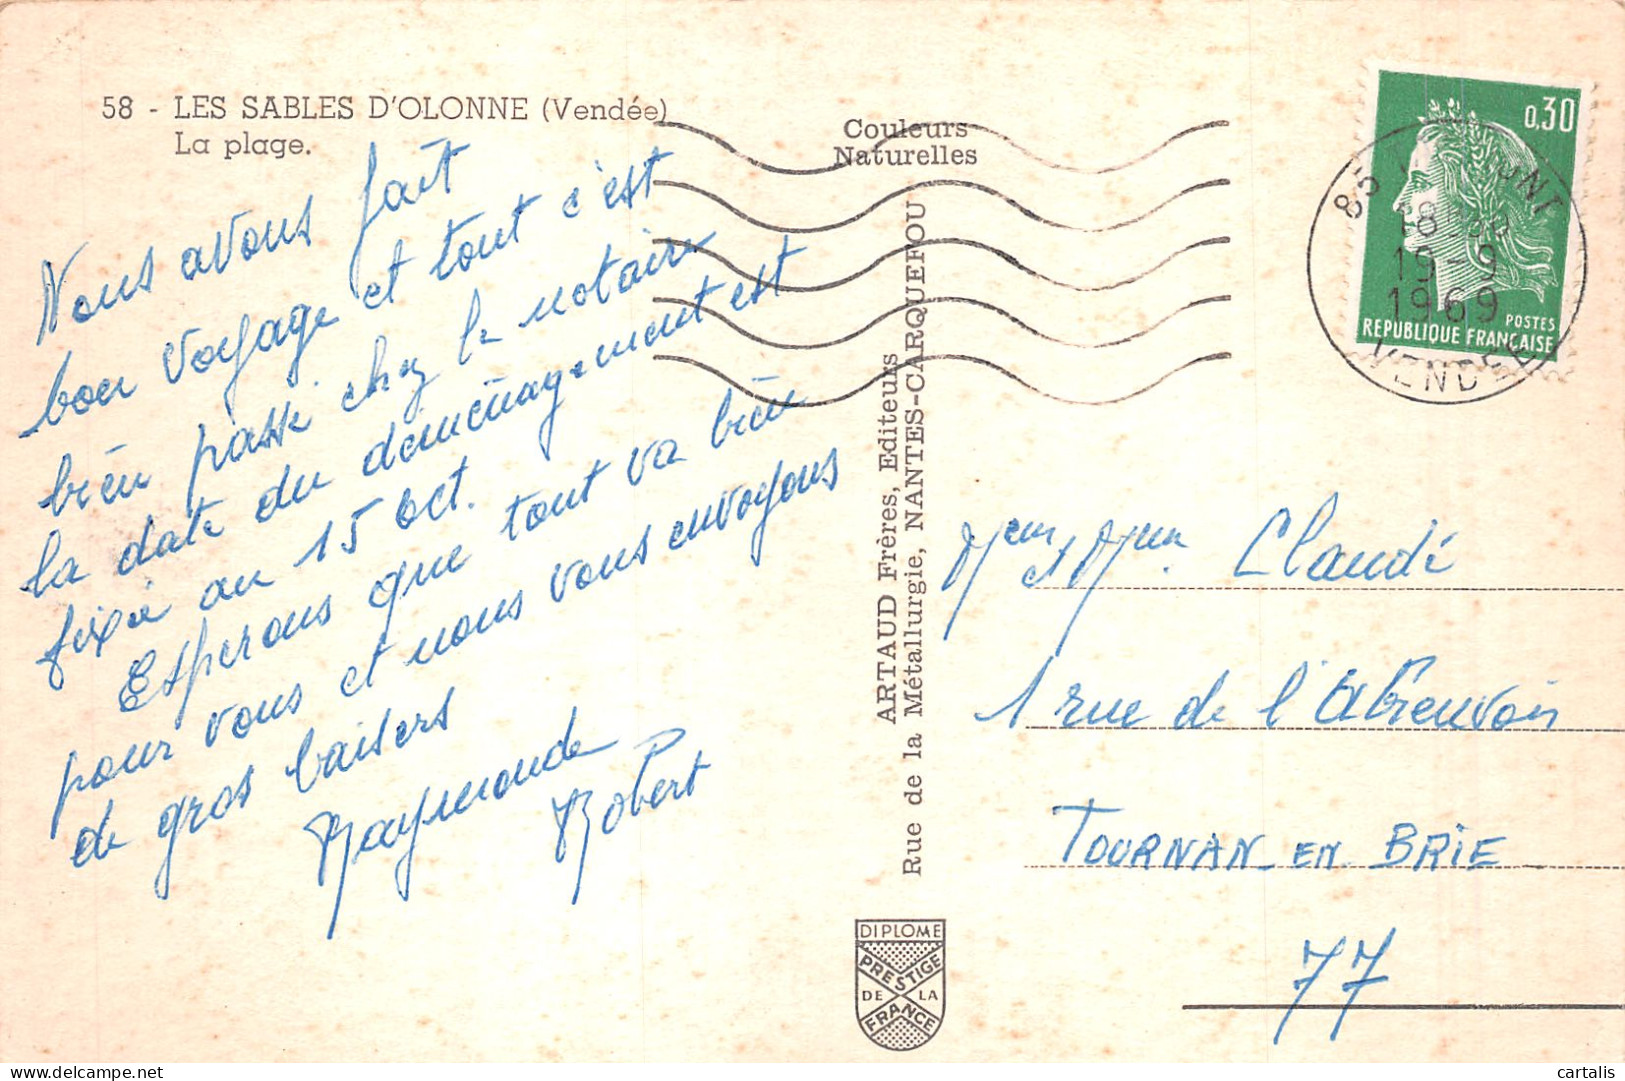 58 - LES SABLES D'OLONNE (Vendée)
La plage.
Couleurs
Naturelles
Nous avons fait
bon voyage et tout c'est
bien passé chez le notaire
la date du déménagement est
fixée au 15 Oct.
Esperons que tout va bien
pour vous et nous vous envoyons
de gros baisers
Raymonde
Robert
ARTAUD Frères, Editeurs
Rue de la Métallurgie, NANTES-CARQUEFOU
0,30
POSTES
REPUBLIQUE FRANÇAISE
85
18H
19-9
1969
VENDEE
et Claude
1 rue de l'Abreuvoir
TOURNAN EN BRIE
77
DIPLOME
PRESTIGE
DE LA
FRANCE
cartalis
delcampe.net